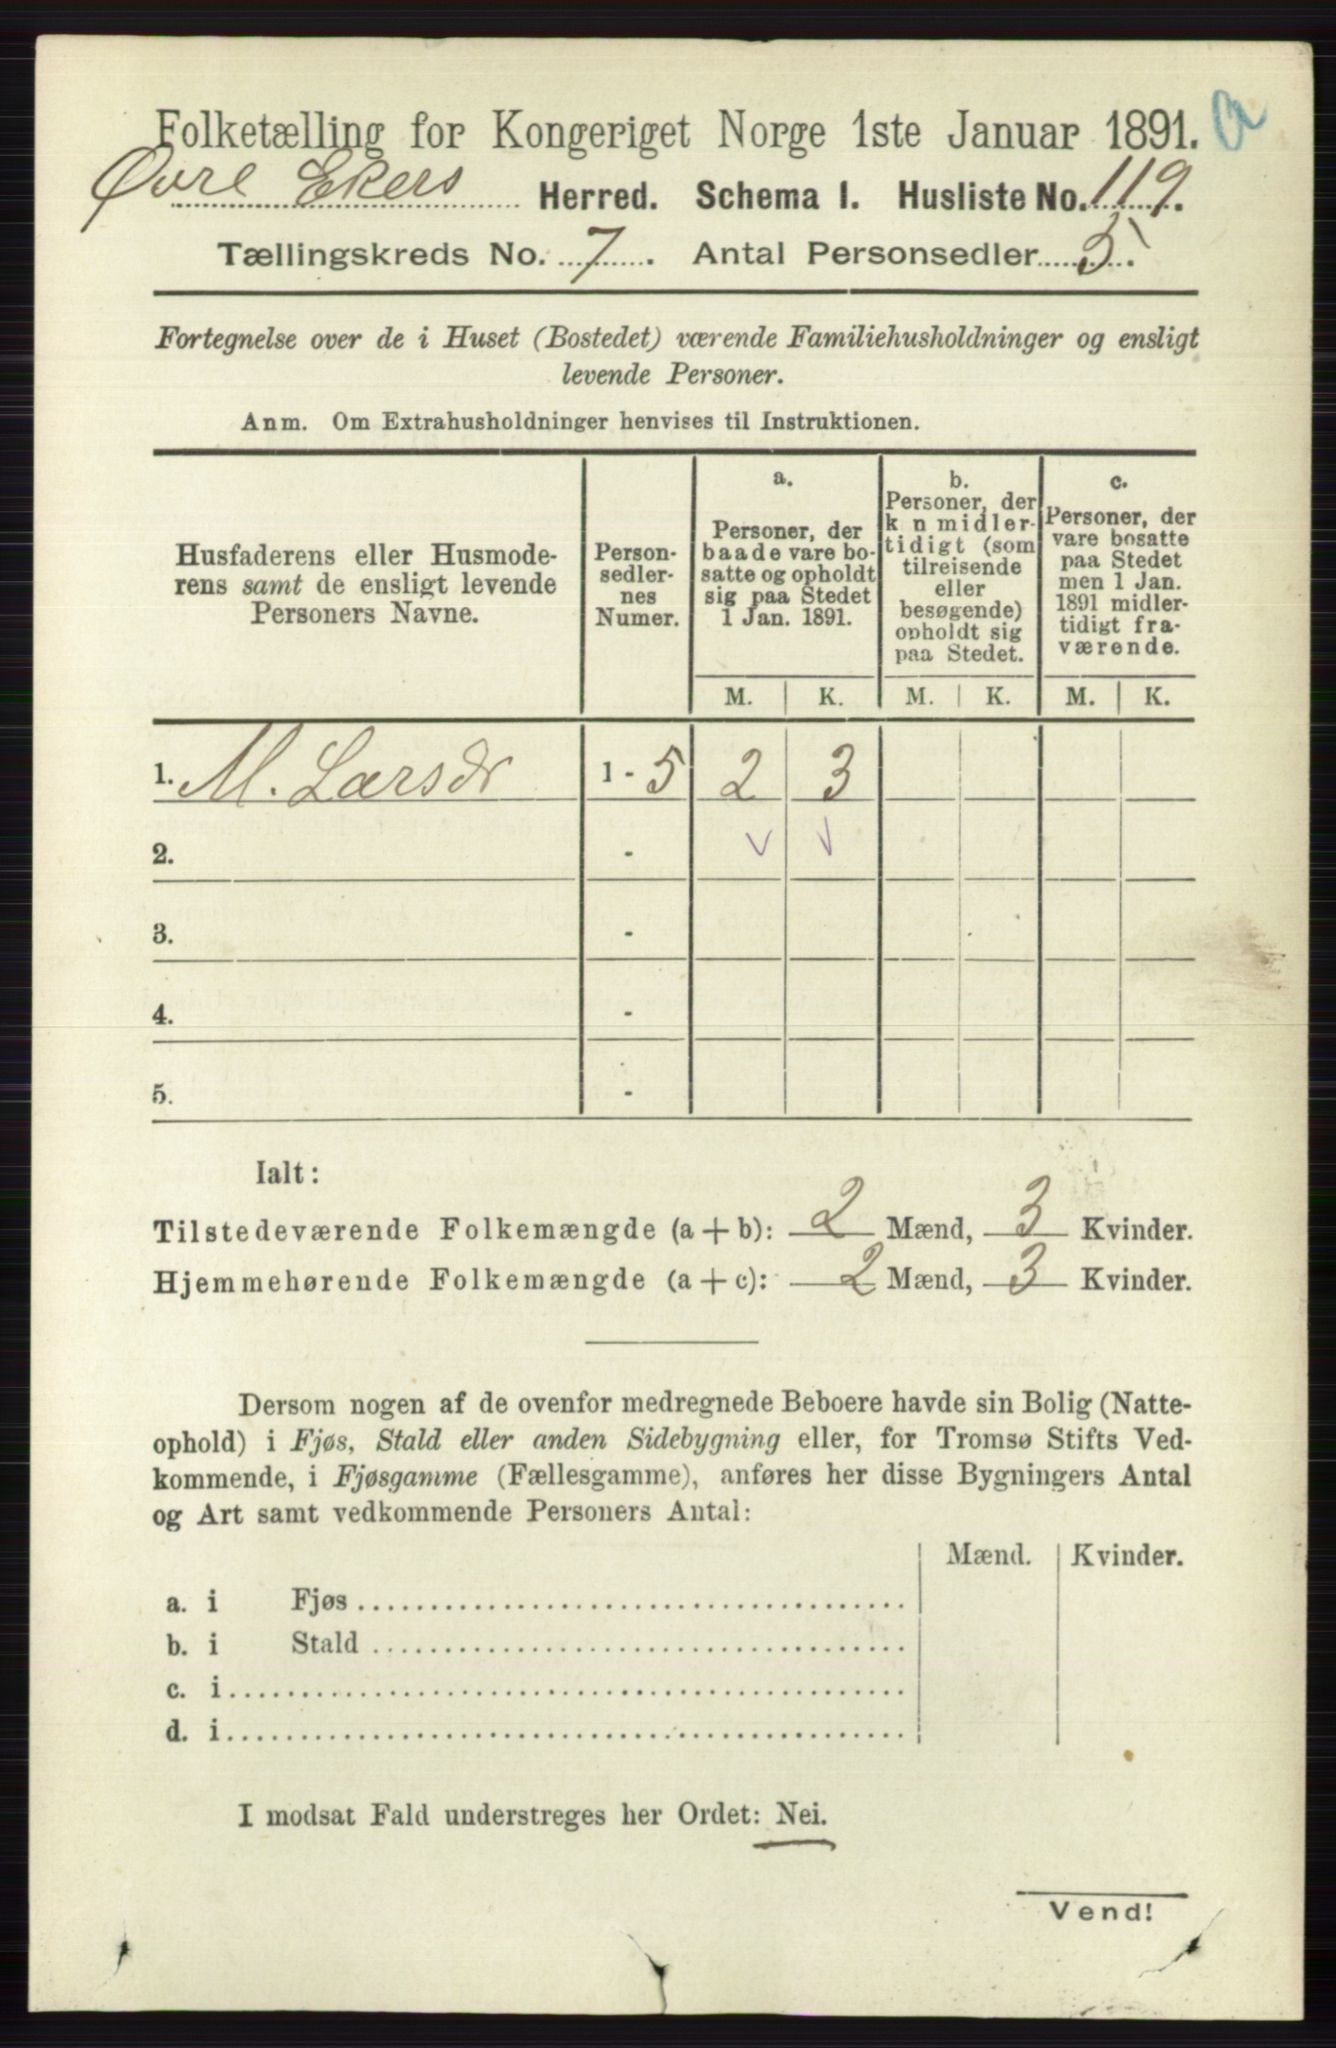 Folketælling for Kongeriget Norge 1ste Januar 1891.
Øvre Ekers Herred. Schema I. Husliste No. 119.
Tællingskreds No. 7. Antal Personsedler 5.
Fortegnelse over de i Huset (Bostedet) værende Familiehusholdninger og ensligt
levende Personer.
Anm. Om Extrahusholdninger henvises til Instruktionen.
Husfaderens eller Husmode-
rens samt de ensligt levende
Personers Navne.
Person-
sedler-
nes
Numer.
a.
Personer, der
baade vare bo-
satte og opholdt
sig paa Stedet
1 Jan. 1891.
b.
Personer, der
k n midler-
tidigt (som
tilreisende
eller
besøgende)
opholdt sig
paa Stedet.
c.
Personer, der
vare bosatte
paa Stedet
men 1 Jan.
1891 midler-
tidigt fra-
værende.
M. K. M. K. M. K.
1. M. Larsdr 1 - 5 2 3
2. -
3. -
4. -
5. -
Ialt:
Tilstedeværende Folkemængde (a + b): 2 Mænd, 3 Kvinder.
Hjemmehørende Folkemængde (a + c): 2 Mænd, 3 Kvinder.
Dersom nogen af de ovenfor medregnede Beboere havde sin Bolig (Natte-
ophold) i Fjøs, Stald eller anden Sidebygning eller, for Tromsø Stifts Ved-
kommende, i Fjøsgamme (Fællesgamme), anføres her disse Bygningers Antal
og Art samt vedkommende Personers Antal:
Mænd. Kvinder.
a. i Fjøs
b. i Stald
c. i
d. i
I modsat Fald understreges her Ordet: Nei.
Vend!